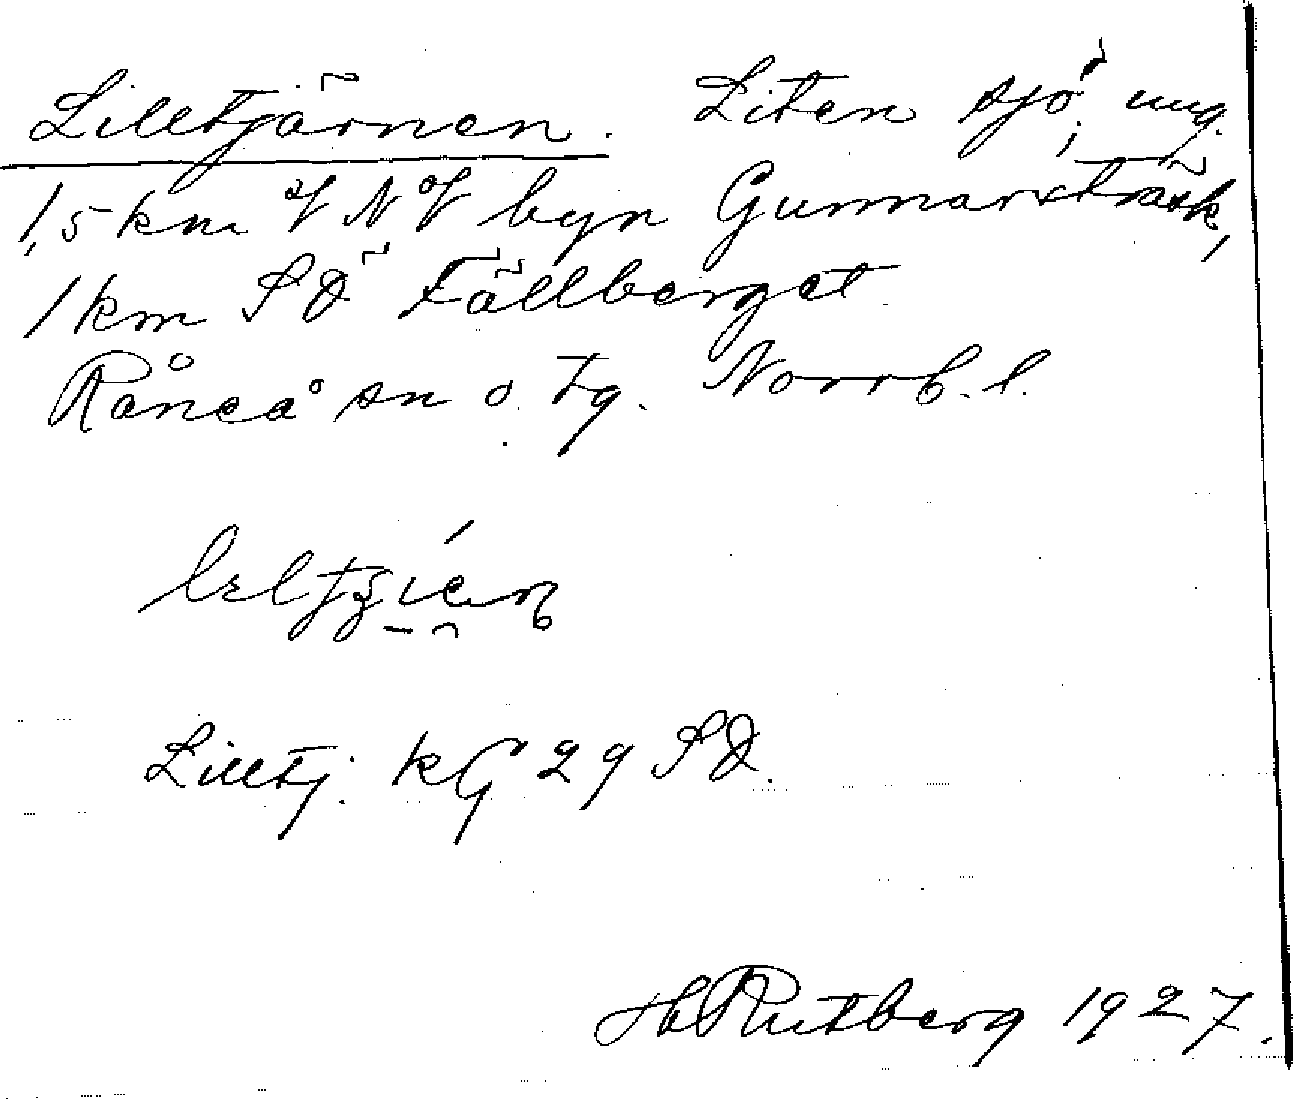 Lilltjärnen. Liten sjö, ung.
1,5 km VNV byn Gunnarsträsk,
1 km SÖ Fällberget
Råneå sn o. tg. Norrb. l.
Lilltj. kG 29 SÖ.
H Rutberg 1927.